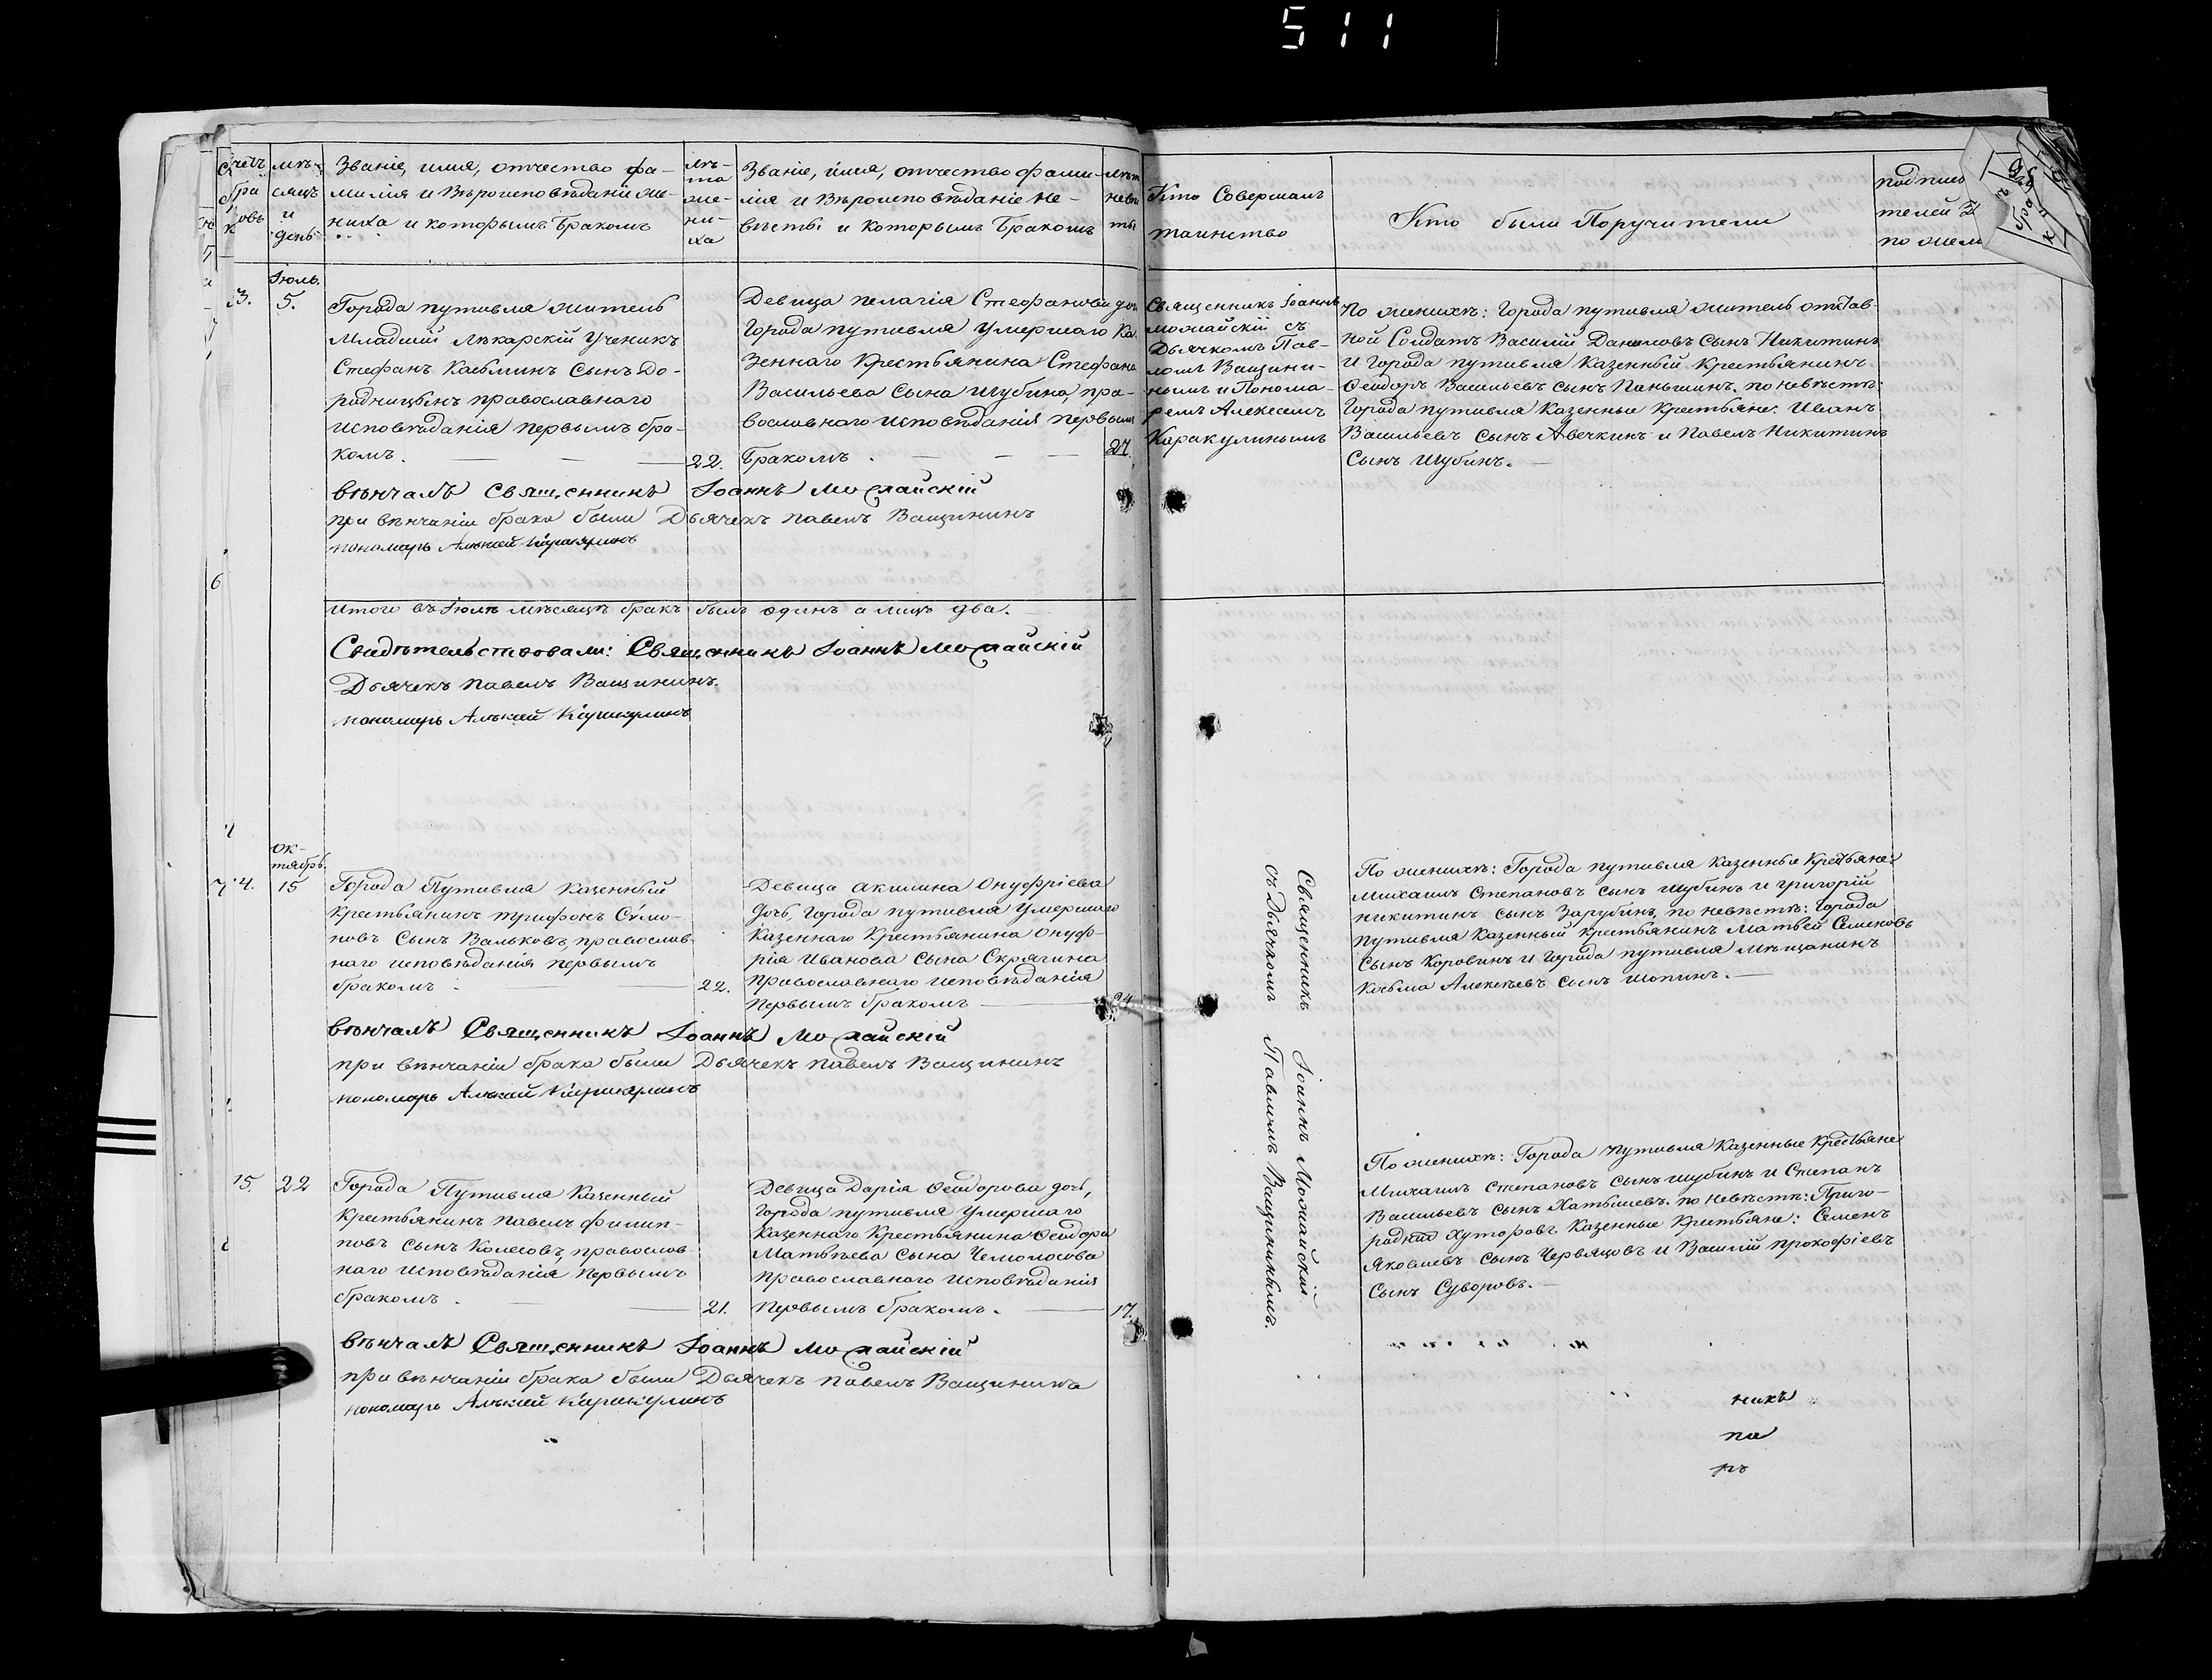 511
Счетъ браковъ
мѣсяцъ и день
Званіе, имя, отчество фа-
милія и Вѣроисповѣданіе же-
ниха и которымъ Бракомъ
лѣ-
та
же-
ни-
ха
Званіе, имя, отчество фами-
лія и Вѣроисповѣданіе Не-
вѣсты и Которымъ Бракомъ
Кто Совершалъ
таинство
Кто были Поручители
подпис
телей
по жела
Іюль.
3.
5.
Города путивля житель
Младшій Лѣкарскій Ученикъ
Стефанъ Козьминъ Сынъ До-
родницынъ православнаго
исповѣданія первымъ бра-
комъ.
22.
Девица пелагія Стефанова доч
Города путивля Умершаго Ка-
зеннаго Крестьянина Стефана
Васильева Сына Шубина, пра-
вославнаго исповѣданія первым
Бракомъ.
27.
Священникъ Іоаннъ
можайскій съ
Дьячкомъ Пав-
ломъ Ващини-
нымъ и Понома-
ремъ Алексеемъ
Каракулинымъ
По женихѣ: Города путивля житель отстав-
ной Солдатъ Василій Даниловъ Сынъ Никитинъ
и Города путивля Казенный Крестьянинъ
Ѳеодоръ Васильевъ Сынъ Паньшинъ. по невѣстѣ:
Города путивля Казенные Крестьяне: Иванъ
Васильевъ Сынъ Авечкинъ и Павелъ Никитинъ
Сынъ Шубинъ.
вѣнчалъ Священникъ Іоаннъ Можайскій
при вѣнчаніи брака были Дьячекъ павелъ Ващининъ
пономарь Алѣксей Каракулинъ
итого въ Іюлѣ мѣсяцѣ бракъ былъ одинъ а лицъ два.
Свидѣтельствовали: Священникъ Іоаннъ Можайскій
Дьячекъ павелъ Ващининъ.
пономарь Алѣксей Каракулинъ
ок-
тябрь.
4.
15
Города Путивля Казенный
Крестьянинъ трифонъ Сѵмо-
новъ Сынъ Вальковъ, православ-
наго исповѣданія первымъ
бракомъ
22.
Девица акилина Онуфріева
дочь, Города путивля Умершаго
Казеннаго Крестьянина Онуф-
рія Иванова Сына Скрягина
православнаго исповѣданія
первымъ бракомъ
24
Священникъ Іоаннъ Можайскій
съ Дьячкомъ Павломъ Ващининымъ.
По женихѣ: Города путивля Казенные Крестьяне:
Михаилъ Степановъ Сынъ Шубинъ и григорій
никитинъ Сынъ Зарубинъ, по невѣстѣ: Города
путивля Казенный крестьянинъ Матвей Семеновъ
Сынъ Коровинъ и Города путивля Мѣщанинъ
Козьма Алексѣевъ Сынъ Шопинъ.
вѣнчалъ Священникъ Іоаннъ Можайскій
при вѣнчаніи брака были Дьячекъ павелъ Ващининъ
пономарь Алѣксей Каракулинъ
15.
22
Города Путивля Казенный
Крестьянинъ павелъ филип-
повъ Сынъ Колесовъ, православ-
наго исповѣданія первымъ
бракомъ.
21.
Девица Дарія Ѳеодорова дочь,
Города путивля Умершаго
Казеннаго Крестьянина Ѳеодора
Матвѣева Сына Чемолосова
православнаго исповѣданія
первымъ бракомъ.
17.
По женихѣ: Города путивля Казенные Крестьяне
Михаилъ Степановъ Сынъ Шубинъ и Степанъ
Васильевъ Сынъ Хатышевъ. по невѣстѣ: Приго-
родній Хуторовъ Казенные Крестьяне: Семенъ
Яковлевъ Сынъ Червяцовъ и Василій Прокофіевъ
Сынъ Суворовъ.
вѣнчалъ Священникъ Іоаннъ Можайскій
при вѣнчаніи брака были Дьячекъ павелъ Ващининъ
пономарь Алѣксей Каракулинъ
никъ
па
рь